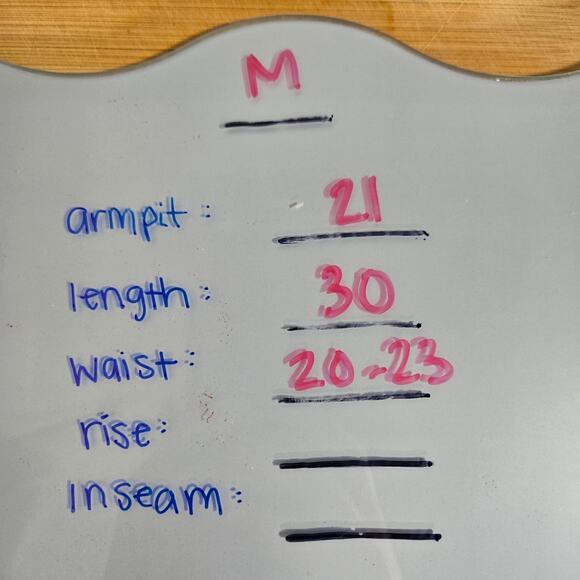 M
armpit: 21
length: 30
waist: 20-23
rise:
inseam: